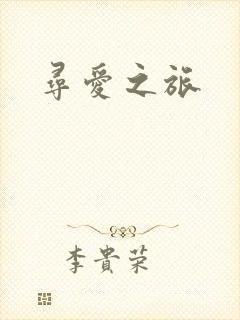 尋愛之旅
李貴荣